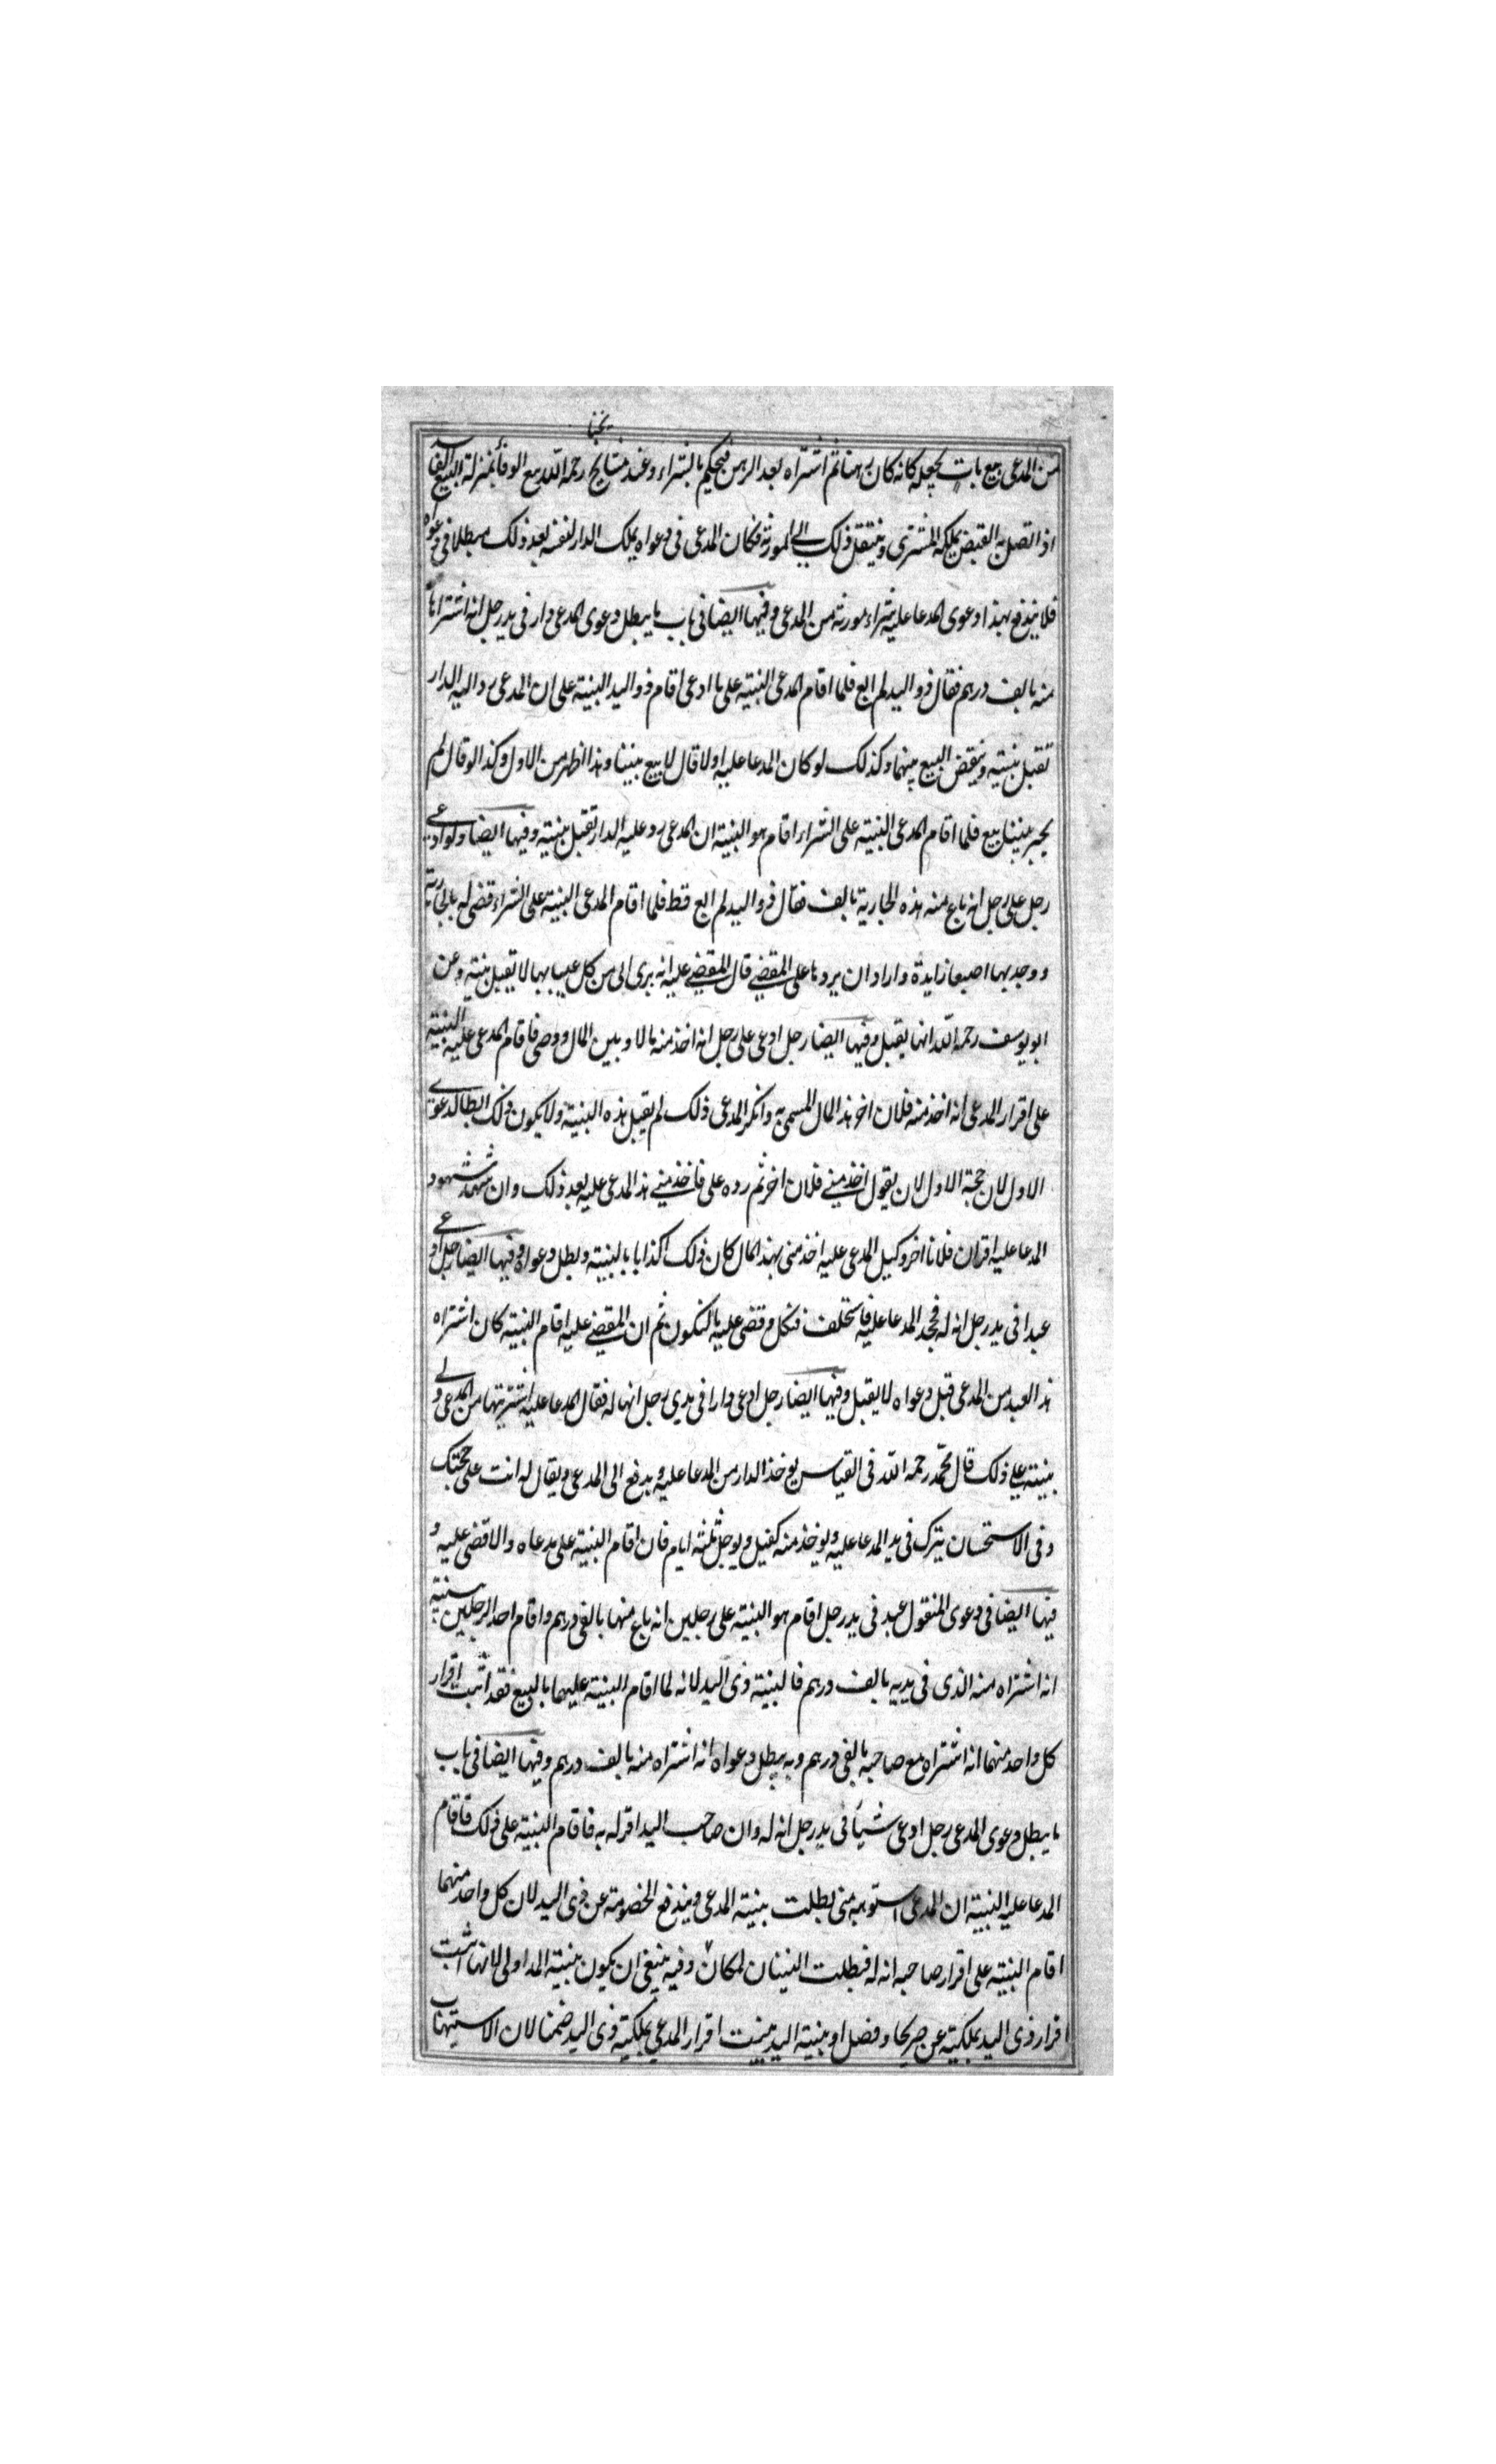 من المدعى بيع بات يجعله كانه كان رهنا ثم اشتراه بعد الرهن فيحكم بالشراء وعند مشايخنا رحمه الله بيع الوفا بمنزلة البيع الفاسد
اذا اتصل به القبض يملكه المشترى وينتقل ذلك الى المورثه فكان المدعى فى دعواه بملك الدار لنفسه بعد ذلك مبطلا فى دعواه
فلا يندفع بهذا دعوى المدعا عليه شراء مورثه من المدعى وفيها ايضا فى باب ما يبطل دعوى المدعى دار فى يد رجل انه اشتراها
منه بالف درهم فقال ذو اليد لم ابع فلما اقام المدعى البينة على ما ادعى اقام ذو اليد البينة على ان المدعى رد اليه الدار
تقبل بينته وينقض البيع بينهما وكذلك لو كان المدعا عليه اولا قال لا بيع بيننا وهذا اظهر من الاول وكذا لو قال لم
يجبر بيننا بيع فلما اقام المدعى البينة على الشراء اقام هو البينة ان المدعى رد عليه الدار تقبل بينته وفيها ايضا ولو ادعى
رجل على رجل انه باع منه هذه الجارية بالف فقال ذو اليد لم ابع قط فلما اقام المدعى البينة على الشراء قضى له بالجارية
ووجد بها اصبعا زايدة واراد ان يردها على المقضى قال المقضى عليه انه برى الى من كل عيب بها لا يقبل بينته وعن
ابو يوسف رحمه الله انها يقبل وفيها ايضا رجل ادعى على رجل انه اخذ منه مالا وبين المال ووصى فاقام المدعى عليه البينة
على اقرار المدعى انه اخذ منه فلان اخر هذا المال المسمى به وانكر المدعى ذلك لم يقبل هذه البينة ولا يكون ذلك ابطالا لدعوى
الاول لان حجة الاول لان يقول اخذ منى فلان اخر ثم رده على فاخذ منى هذا المدعى عليه بعد ذلك وان شهد شهود
المدعا عليه اقر ان فلانا اخر وكيل المدعى عليه اخذ منى بهذا المال كان ذلك اكذابا بالبينة وبطل دعواه وفيها ايضا رجل ادعى
عبدا فى يد رجل انه له فجحد المدعا عليه فاستحلف فنكل وقضى عليه بالنكول ثم ان المقضى عليه اقام البينة كان اشتراه
هذا العبد من المدعى قبل دعواه لا يقبل وفيها ايضا رجل ادعى دارا فى يدى رجل انها له فقال المدعا عليه اشتريتها من المدعى ولى
بينته على ذلك قال محمد رحمه الله فى القياس يوخذ الدار من المدعا عليه ويدفع الى المدعى ويقال له انت على حجتك
وفى الاستحسان يترك فى يد المدعا عليه ويوخذ منه كفيل ويوجل ثلثه ايام فان اقام البينة على مدعاه والا قضى عليه و
فيها ايضا فى دعوى المنقول عبد فى يد رجل اقام هو البينة على رجلين انه باع منهما بالفى درهم واقام احد الرجلين بينته
انه اشتراه منه الذى فى يديه بالف درهم فالبينة ذى اليد لانه لما اقام البينة عليهما بالبيع فقد اثبت اقرار
كل واحد منهما انه اشتراه مع صاحبه بالفى درهم وبه يبطل دعواه انه اشتراه منه بالف درهم وفيها ايضا فى باب
ما يبطل دعوى المدعى رجل ادعى شيئا فى يد رجل انه له وان صاحب اليد اقر له به فاقام البينة على ذلك فاقام
المدعا عليه البينة ان المدعى استوهبه منى بطلت بينة المدعى ويندفع الخصومة عن ذى اليد لان كل واحد منهما
اقام البينة على اقرار صاحبه انه له فبطلت البينتان لمكان وفيه ينبغى ان يكون بينة المد اولى لانها اثبت
اقرار ذى اليد بملكيته عن صريحا وفضل او بينة اليد يثبت اقرار المدعى بملكية ذى اليد ضمنا لان الاستيهاب